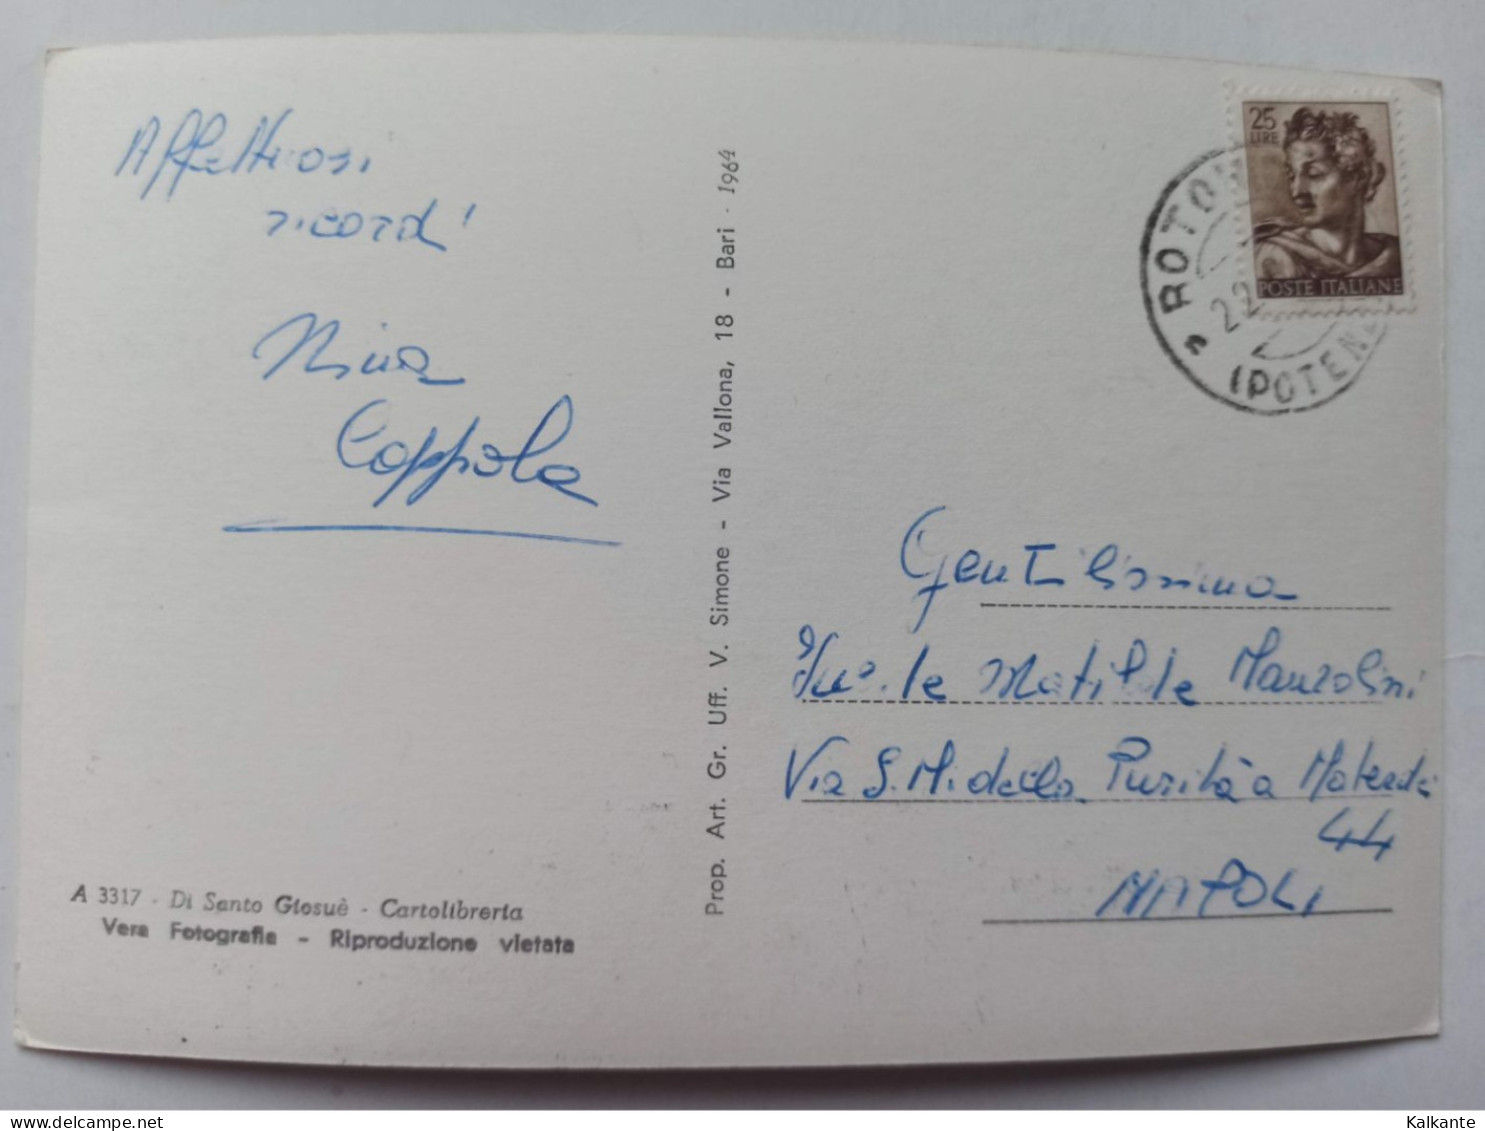 Affettuosi
ricordi
Nina
Coppola
A 3317 - Di Santo Giosuè - Cartolibreria
Vera Fotografia - Riproduzione vietata
Prop. Art. Gr. Uff. V. Simone - Via Vallona, 18 - Bari - 1964
25
LIRE
POSTE ITALIANE
ROTON
(POTENZ
Gentilissima
Matilde Manzolini
Via S. M. della Purità a Materdei
44
NAPOLI
delcampe.net
Kalkante